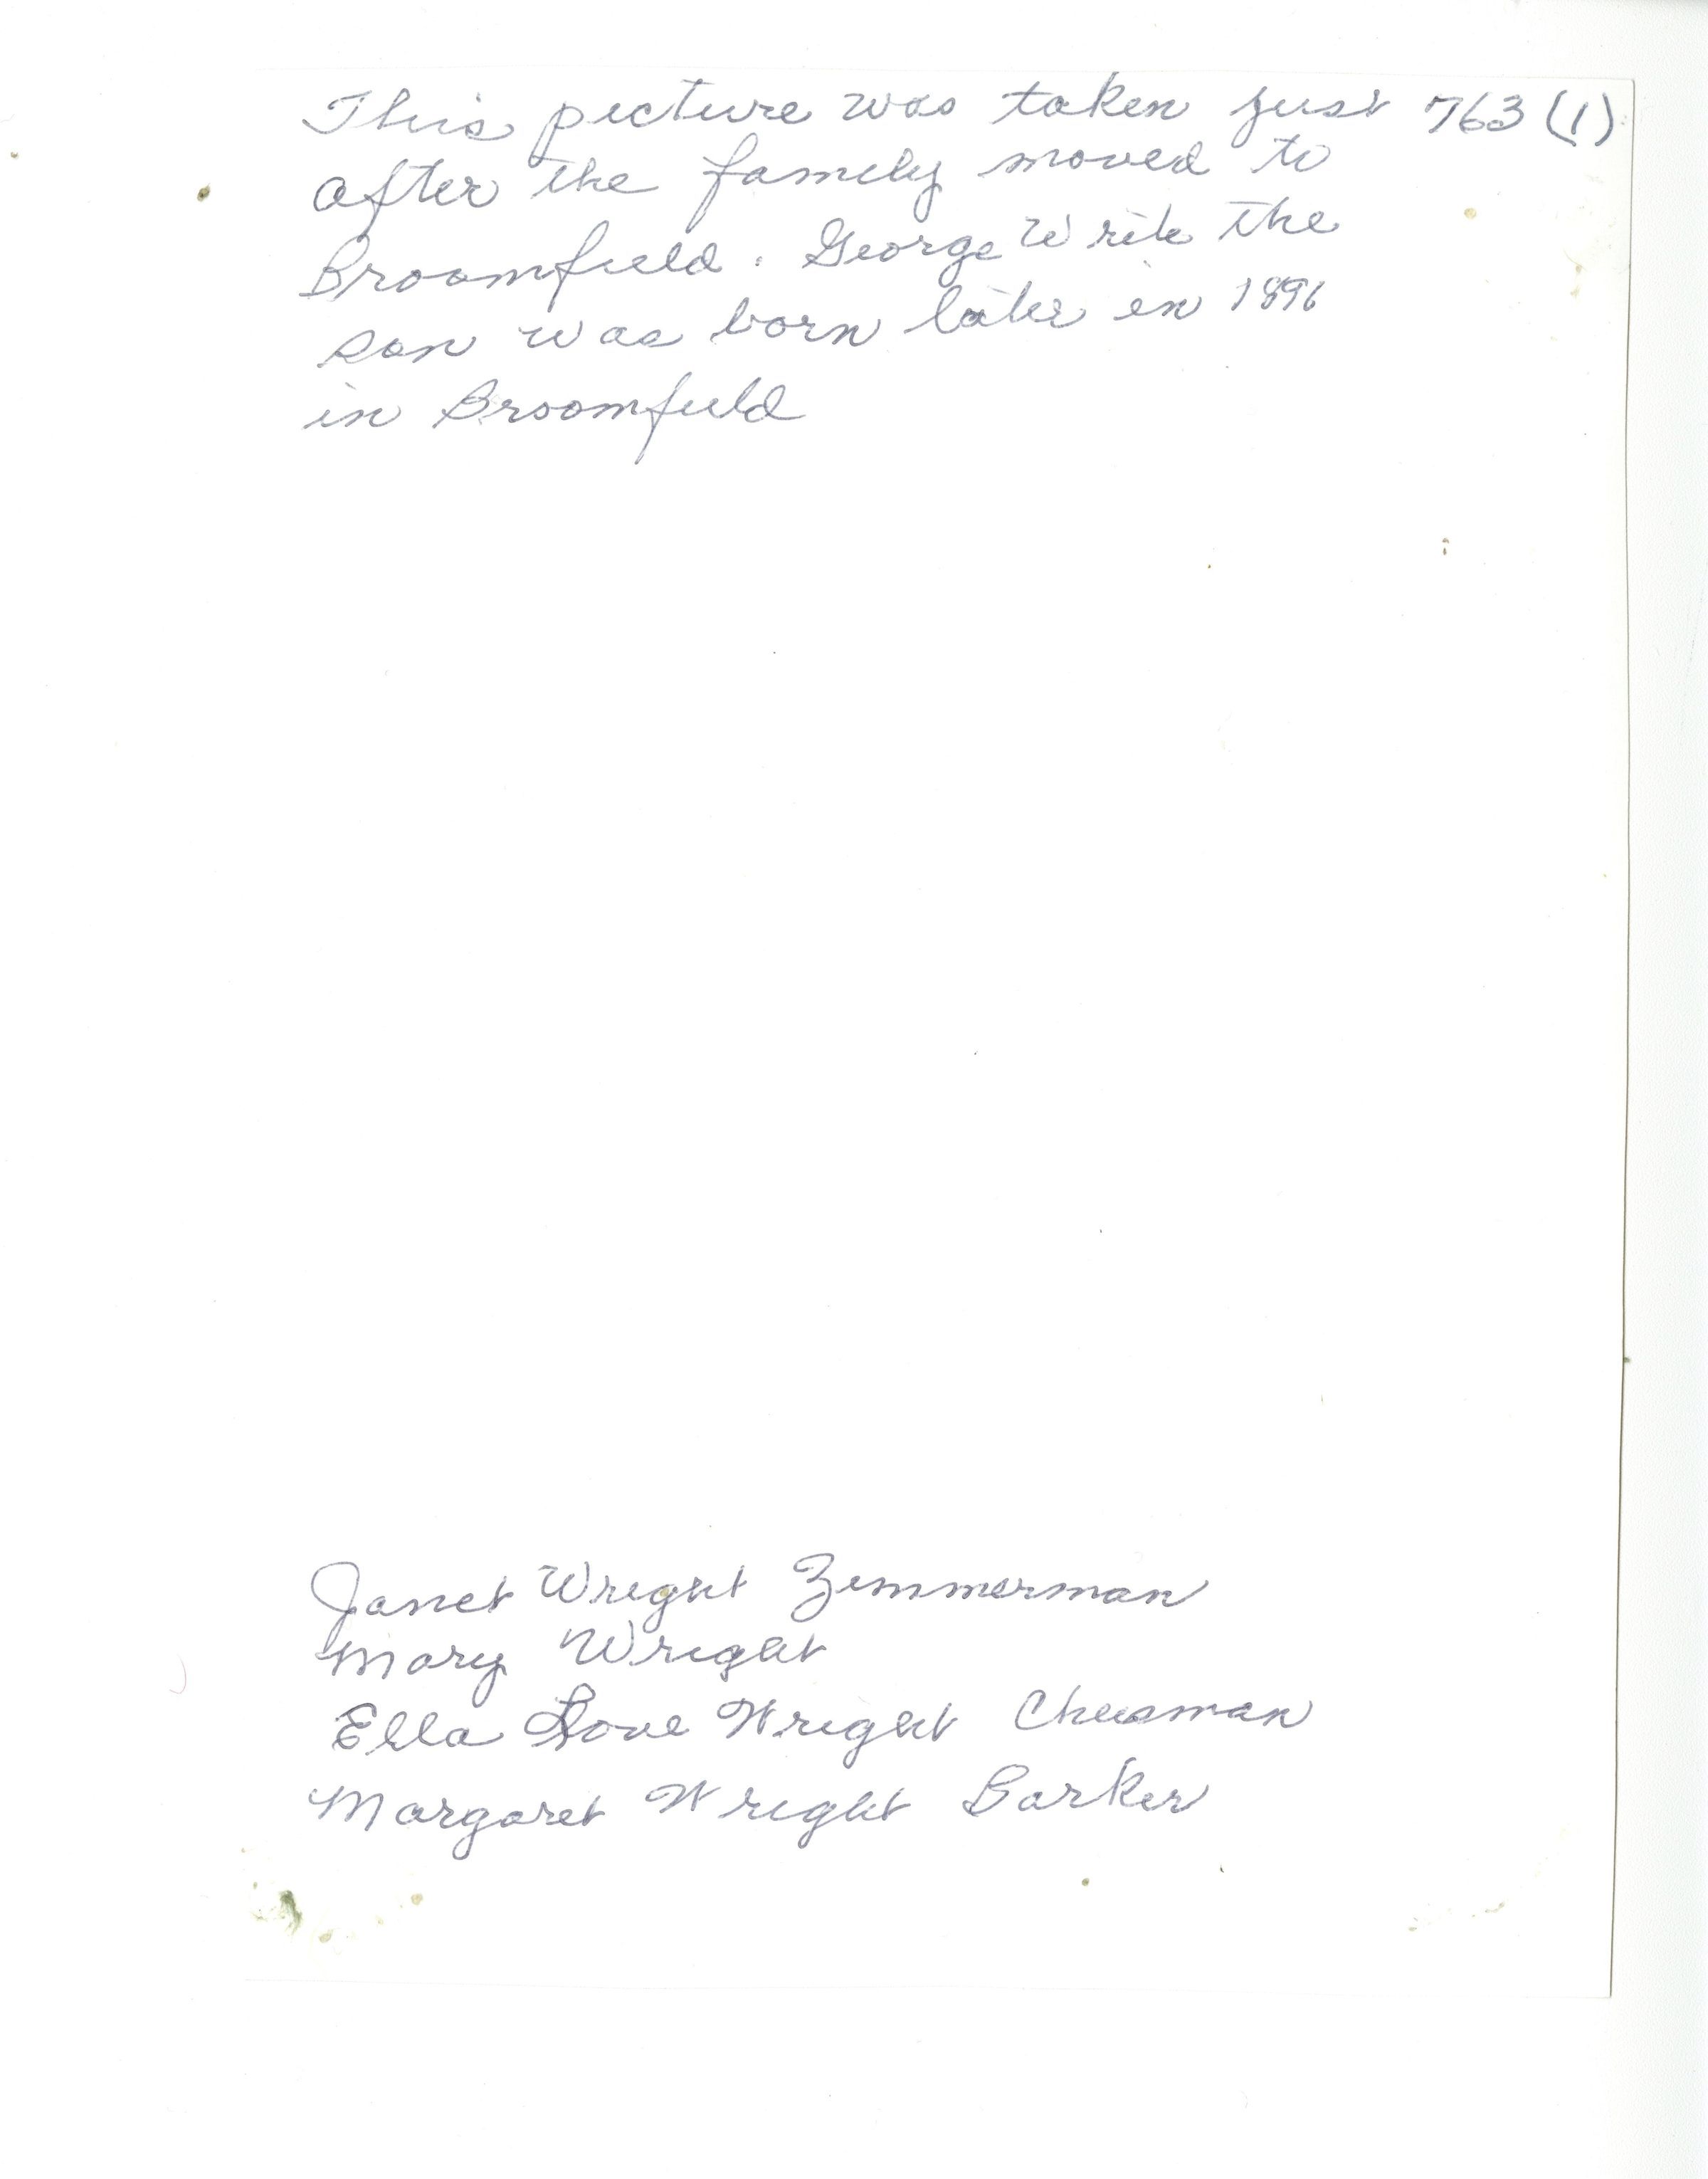 This picture was taken just 763 (1)
after the family moved to
Broomfield. George Write the
son was born later in 1896
in Broomfield
Janet Wright Zimmerman
Mary Wright
Ella Love Wright Cheesman
Margaret Wright Barker